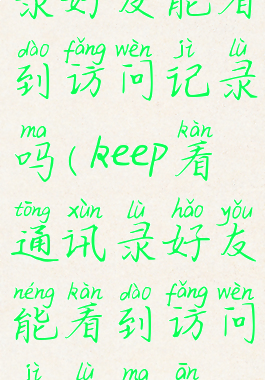 录好友能看
dào fǎng wèn jì lù
到访问记录
ma kàn
吗(keep看
tōng xùn lù hǎo yǒu
通讯录好友
néng kàn dào fǎng wèn
能看到访问
jì lù ma ān